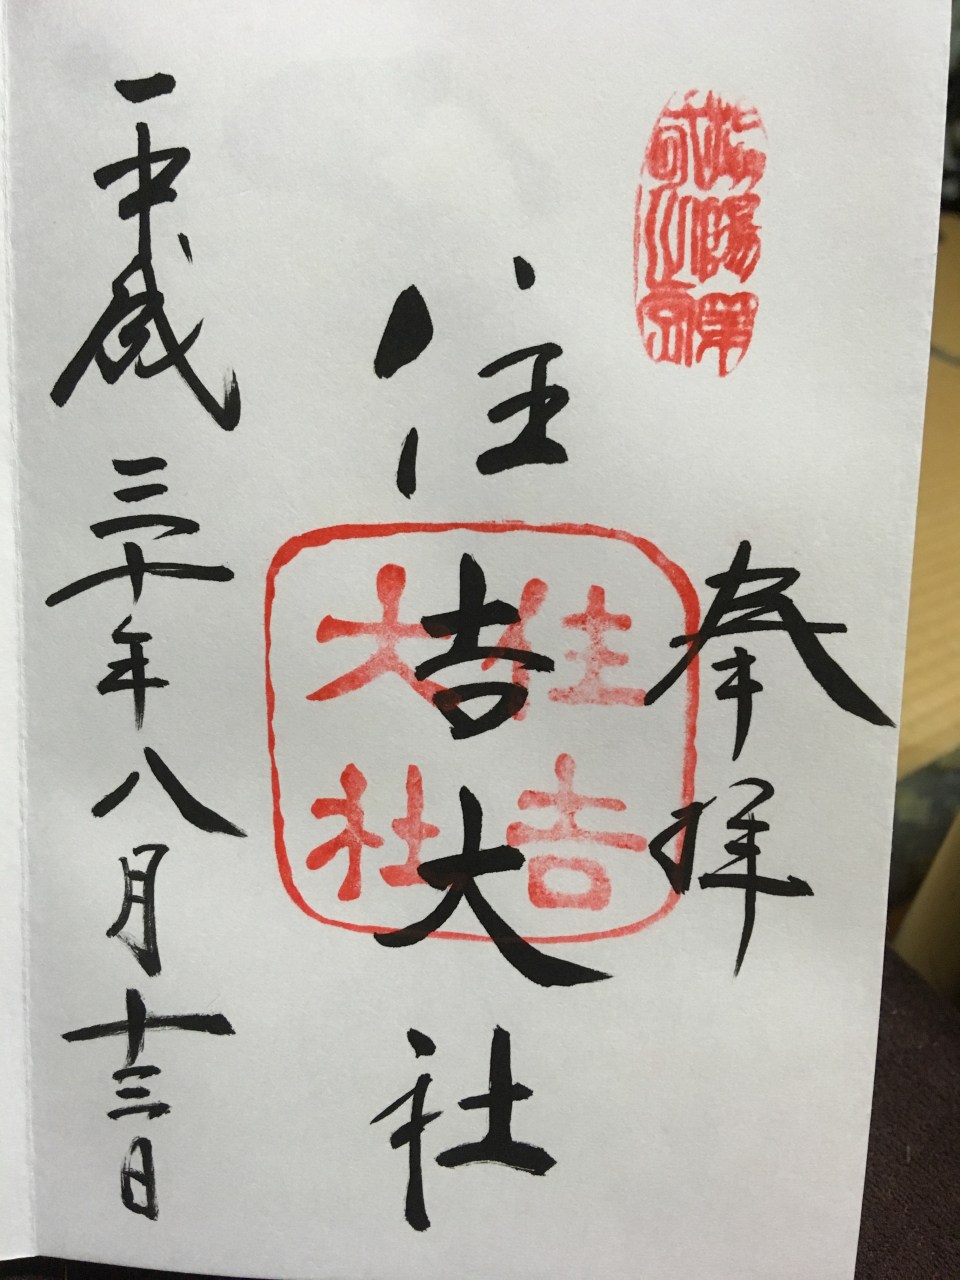 奉拝
住吉大社
住吉
大社
平成三十年八月十三日